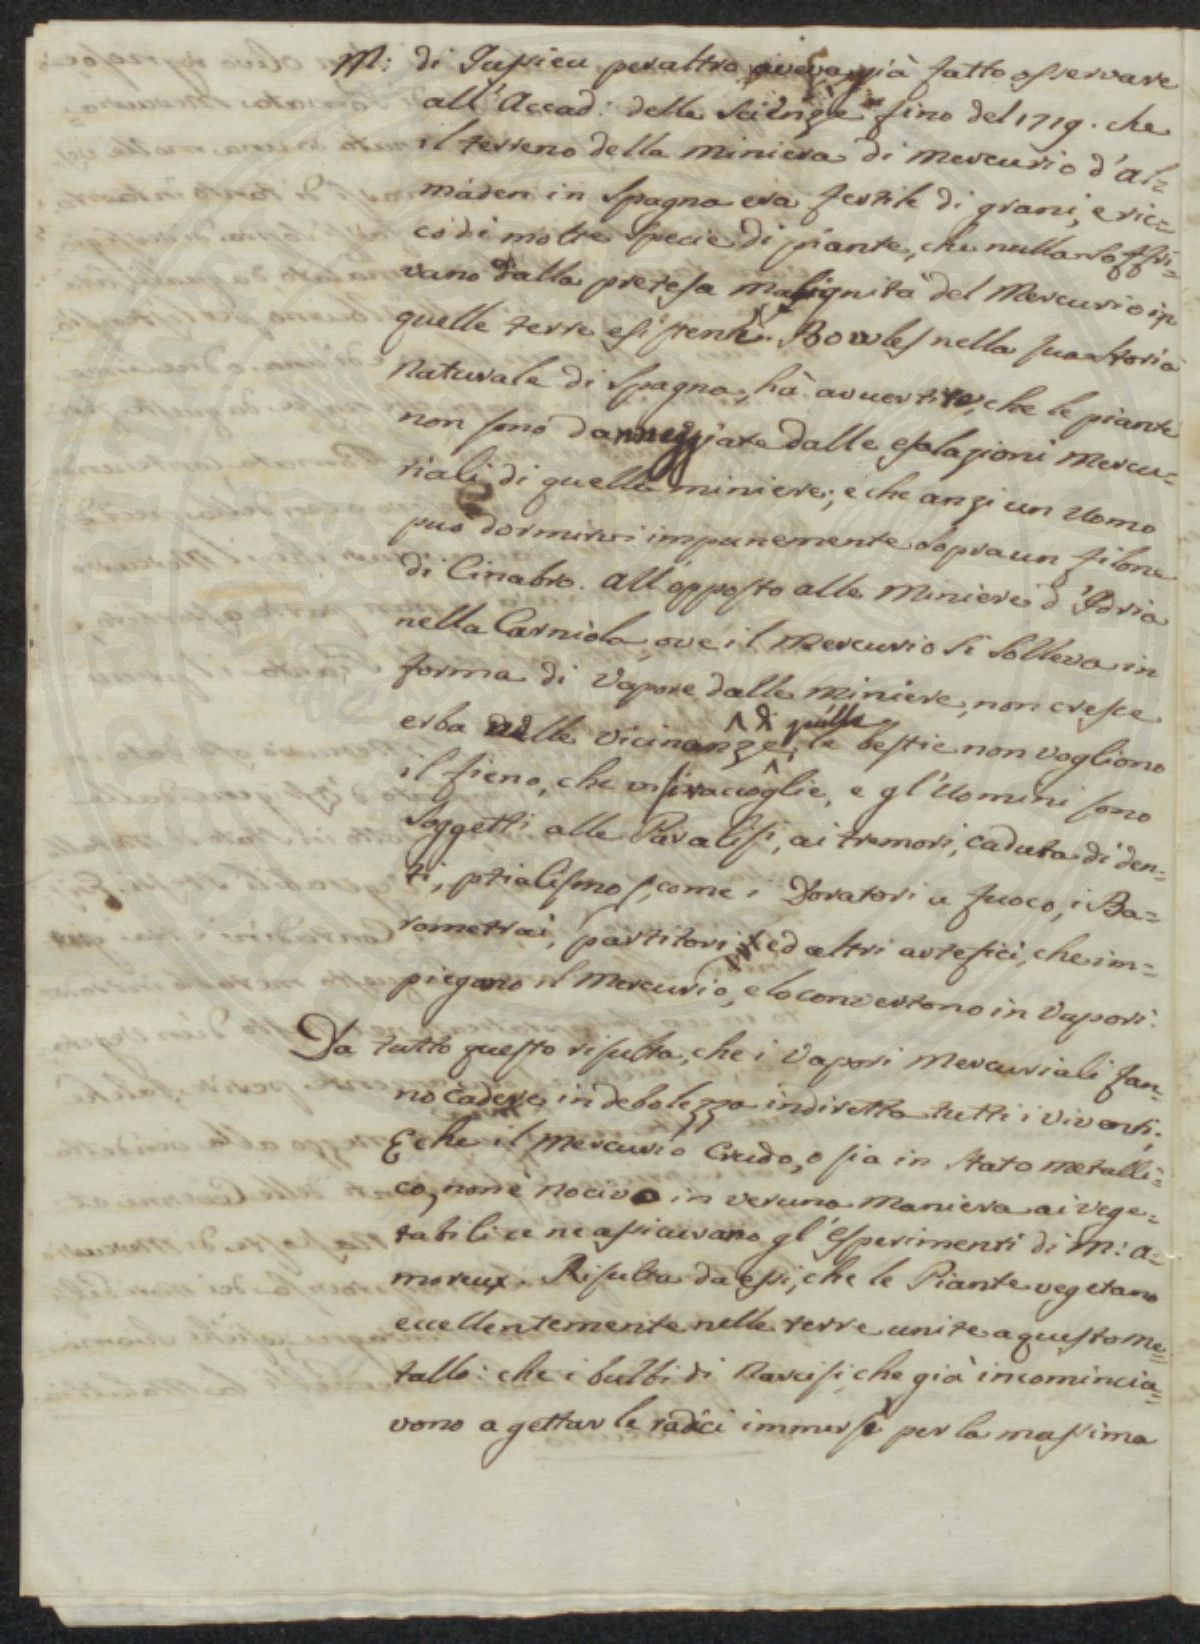 M: di Jussieu peraltro aveva già fatto osservare
all'Accad: delle Scienze fino del 1719. che
il terreno della miniera di mercurio d'Al=
maden in Spagna era fertile di grani, e ric=
co di molte specie di piante, che nulla soffri=
vano dalla pretesa malignità del Mercurio in
quelle terre esistente. Bowles nella sua Storia
Naturale di Spagna, hà avvertito, che le piante
non sono danneggiate dalle esalazioni Mercu=
riali di quelle miniere; e che anzi un Uomo
può dormirvi impunemente sopra un filone
di Cinabro. All'opposto alle Miniere d'Idria
nella Carniola, ove il Mercurio si solleva in
forma di Vapore dalle miniere, non cresce
erba nelle vicinanze di quelle, le bestie non vogliono
il fieno, che vi si raccoglie, e gl'Uomini sono
soggetti alle Paralisi, ai tremori, caduta di den=
ti, ptialismo, come i Doratori a fuoco, i Ba=
rometraj, partitori, ed altri artefici, che im=
piegano il Mercurio, e lo convertono in Vapori.
Da tutto questo risulta, che i Vapori Mercuriali fan=
no cadere in debolezza indiretta tutti i viventi;
E che il Mercurio Crudo, o sia in stato metalli=
co, non è nocivo in veruna maniera ai vege=
tabili ce ne assicurano gl'esperimenti di M: A=
moreux. Risulta da essi, che le Piante vegetano
eccellentemente nelle terre unite a questo me=
tallo: che i bulbi di Narcisi, che già incomincia=
vono a gettar le radici immersi per la massima